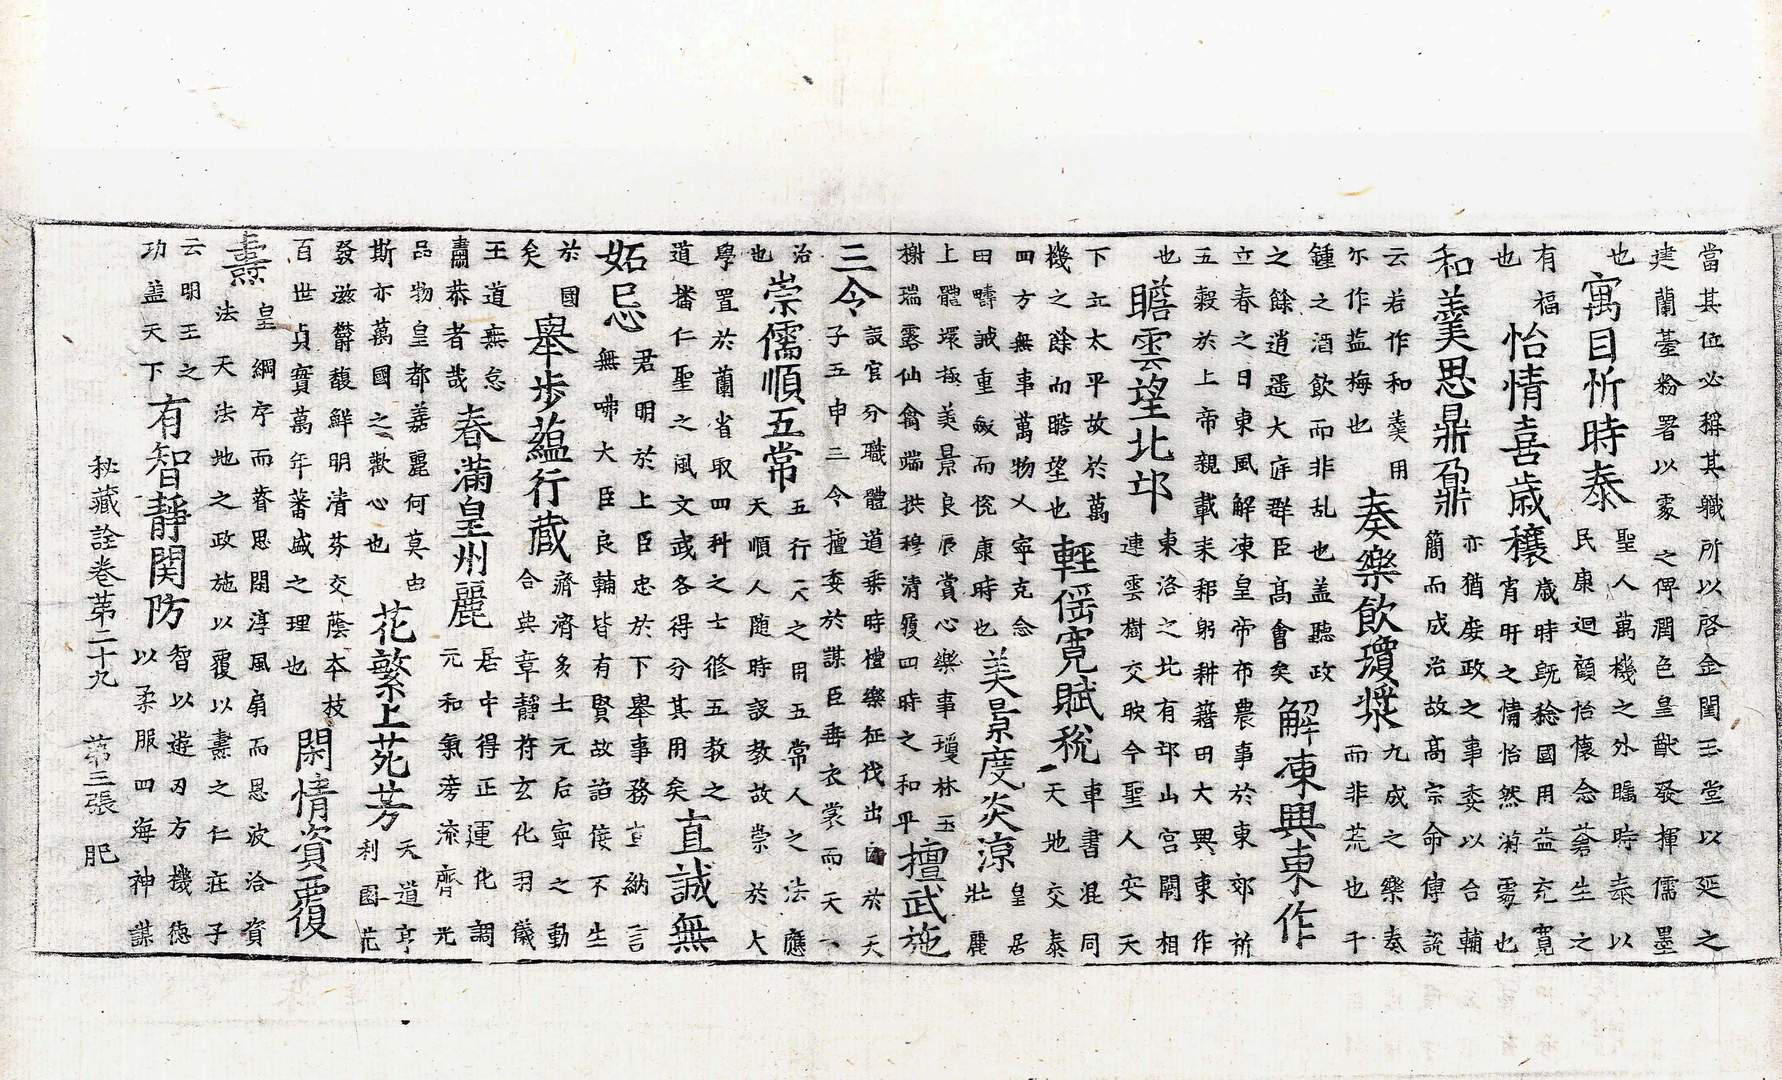 當其位必稱其職所以啓金閨玉堂以延之
建蘭臺粉署以處之俾潤色皇猷發揮儒墨
也
寓目忻時泰
聖人萬機之外矚時泰以
民康迴顧怡懷念蒼生之
有福
也
怡情喜歲穰
歲時旣稔國用益充寬
宵旰之情怡然也
和羹思鼎鼐
亦猶庶政之事委以合輔
簡而成治故高宗命傅說
云若作和羹用
尒作盐梅也
奏樂飲瓊漿
九成之樂奏
而非荒也千
鍾之酒飲而非乱也盖聽政
之餘逍遥大庭群臣高會矣
解凍興東作
立春之日東風解凍皇帝布農事於東郊祈
五穀於上帝親載耒耜躬耕籍田大興東作
也
瞻雲望北邙
東洛之北有邙山宮闕相
連雲樹交映今聖人安天
下立太平故於萬
機之餘而瞻望也
輕徭寬賦稅
車書混同
天地交泰
四方無事萬物乂寧克念
田疇誠重斂而康時也
美景度炎涼
皇居
壯麗
上體環極美景良辰賞心樂事瓊林玉
榭瑞露仙禽端拱穆清履四時之和平
擅武施
三令
設官分職體道乘時禮樂征伐出於天
子五申三令擅委於謀臣垂衣裳而天
治
也
崇儒順五常
五行天之用五常人之法應
天順人随時設教故崇於大
學置於蘭省取四科之士修五教之
道播仁聖之風文武各得分其用矣
直誠無
妬忌
君明於上臣忠於下舉事務宣納言
無咈大臣良輔皆有賢故諂佞不生
於國
矣
舉步藴行藏
濟濟多士元后寧之動
合典章靜符玄化羽儀
王道無怠
肅恭者哉
春滿皇州麗
居中得正運化調
元和氣滂流齊光
品物皇都嘉麗何莫由
斯亦萬國之歡心也
花繁上苑芳
天道亨
利園花
發滋欝馥鮮明清芬交蔭本枝
百世貞寶萬年蕃盛之理也
閑情資覆
燾
皇綱序而眷思閑淳風扇而恩波洽資
法天法地之政施以覆以燾之仁莊子
云明王之
功盖天下
有智靜関防
智以遊刃方機德
以柔服四海神謀
秘藏詮卷第二十九 第三張 肥